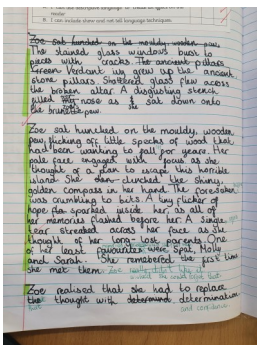 I can include show and not tell language techniques.
Zoe sat hunched on the mouldy, wooden pew.
The stained glass windows bust to
pieces with cracks. The ancient pillars
Green Verdant ivy grew up the ancient
stone pillars. Shattered glass flew across
the broken altar. A disgusting stench
filled nose as sat down onto
she
the pew.
Zoe sat hunched on the mouldy, wooden
pew, flicking off little specks of wood that
had been wanting to fall for years. Her
pale face engaged with focus as she
thought of a plan to escape this horrible
island. She clutched the shiny,
golden compass in her hand. The forsaken
was crumbling to bits. A tiny flicker of
hope sparked inside her, as all of
her memories flashed before her. A single
tear streaked across her face as she
thought of her long lost parents. One
of her least favourites were Spat, Molly
and Sarah. She remebered the first time
she met them. Zoe
Zoe realised that she had to replace
the thought with determind determination